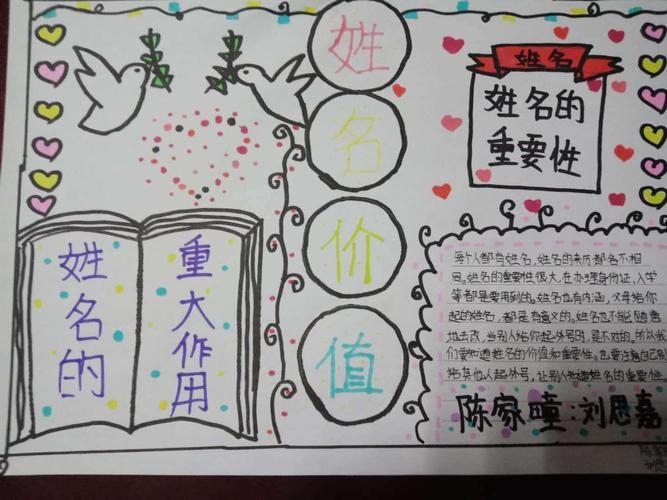 姓
名
价
值
姓名
姓名的
重要性
姓名的
重大作用
每个人都有姓名,姓名的来历都各不相
同。姓名的重要性很大,在办理身份证,入学
等都是要用到的。姓名也有内涵,父母给你
起的姓名,都是有意义的。姓名也不能随意
地去改,当别人给你起外号时,是不对的,所以我
们要知道姓名的价值和重要性。也要注意自己别
给其他人起外号,让别人知道姓名的重要性。
陈家瞳:刘思嘉